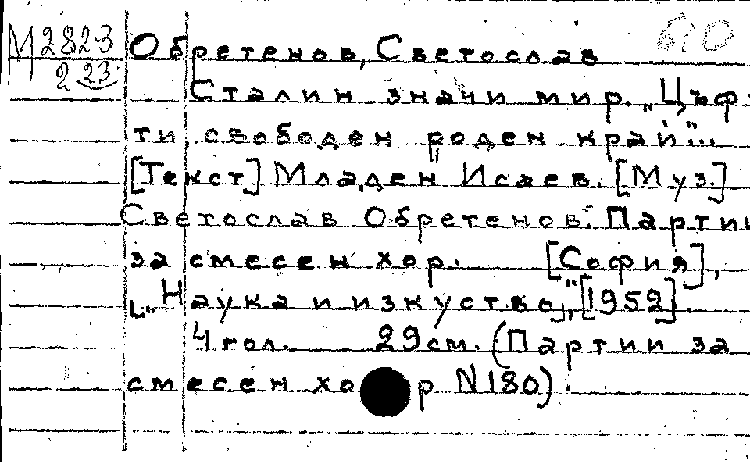 М2823
223
Обретенов, Светослав
Сталин значи мир. „Цъф-
ти, свободен роден край“...
[Текст] Младен Исаев. [Муз.]
Светослав Обретенов. Партии
за смесен хор. [София],
„Наука и изкуство“, [1952].
4 гол. 29 см. (Партии за
смесен хор N 180).